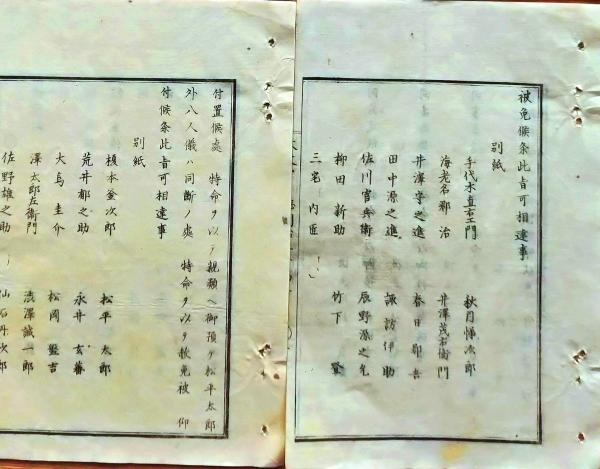 被免候条此旨可相達事
別紙
手代木直右エ門 秋月悌次郎
海老名郡治 井澤茂右衛門
井澤 之進 春日郡吾
田中源之進 諏訪伊助
佐川官兵衛 辰野源之允
柳田新助 竹下
三宅内匠
付置候處 特命ヲ以テ親類ヘ御預ケ松平太郎
外八人儀ハ同断ノ處 特命ヲ以テ赦免被 仰
付候条此旨可相達事
別紙
榎本釜次郎 松平太郎
荒井郁之助 永井玄蕃
大鳥圭介 松岡盤吉
澤太郎左衛門 澁澤誠一郎
佐野雄之助 仙石丹次郎